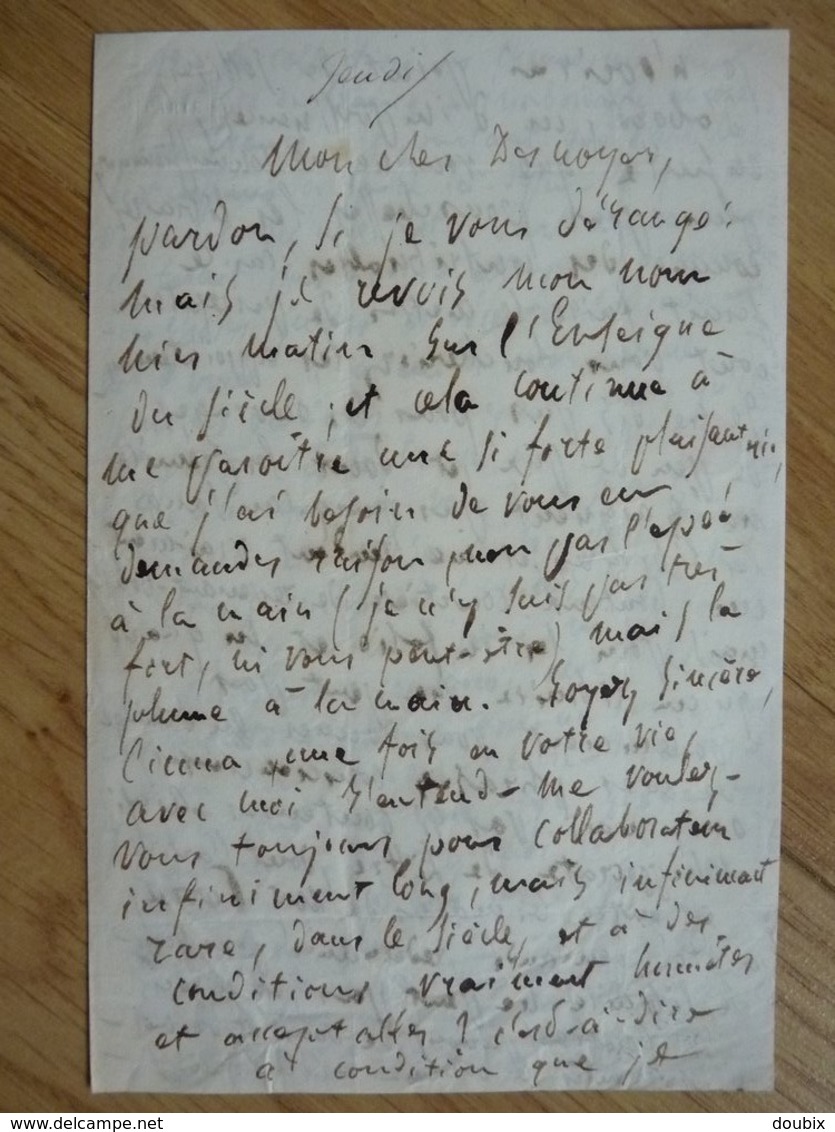 Jeudi/
Mon cher Desnoyers,
pardon, si je vous dérange :
mais je revois mon nom
hier matin sur l'Enseigne
du Siècle ; et cela continue à
me paroître une si forte plaisanterie,
que j'ai besoin de vous en
demander raison, non pas l'épée
à la main (je n'y suis pas très
fort, ni vous peut-être) mais la
plume à la main. Soyez sincère,
Cinna, une fois en votre vie,
avec moi s'entend - me voulez-
vous toujours pour collaborateur
infiniment long, mais infiniment
rare, dans le Siècle, et à des
conditions vraiment honnêtes
et acceptables ? c'est-à-dire
à condition que je
delcampe.net
doubix